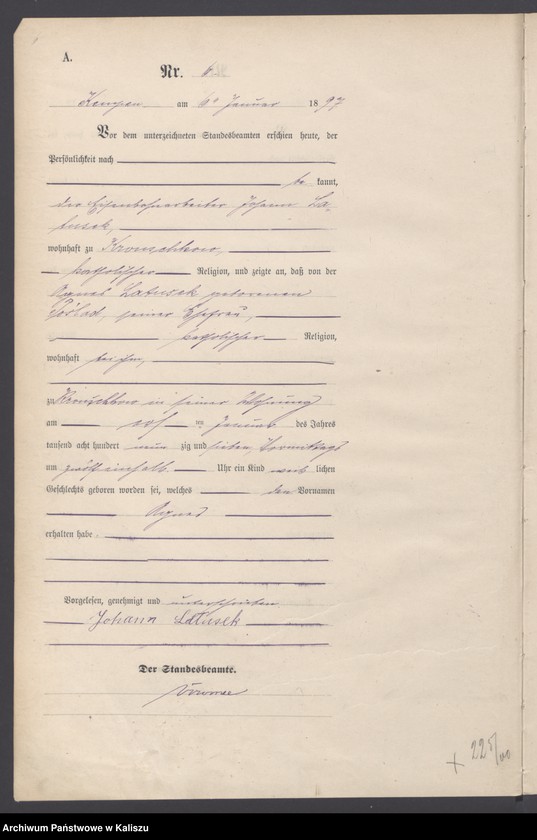 A.
Nr. 6
Kempen am 6ⁿ Januar 1897
Vor dem unterzeichneten Standesbeamten erschien heute, der
Persönlichkeit nach
be kannt,
der Eisenbahnarbeiter Johann La-
tusek,
wohnhaft zu
katholischer Religion, und zeigte an, daß von der
Agnes Latusek geborenen
seiner Ehefrau,
katholischer Religion,
wohnhaft bei ihm,
zu in seiner Wohnung
am ten Januar des Jahres
tausend acht hundert neun zig und sieben Vormittags
um zwölf einhalb Uhr ein Kind weib lichen
Geschlechts geboren worden sei, welches den Vornamen
Agnes
erhalten habe
Vorgelesen, genehmigt und unterschrieben
Johann Latusek
Der Standesbeamte.
+ 225/00
Archiwum Państwowe w Kaliszu